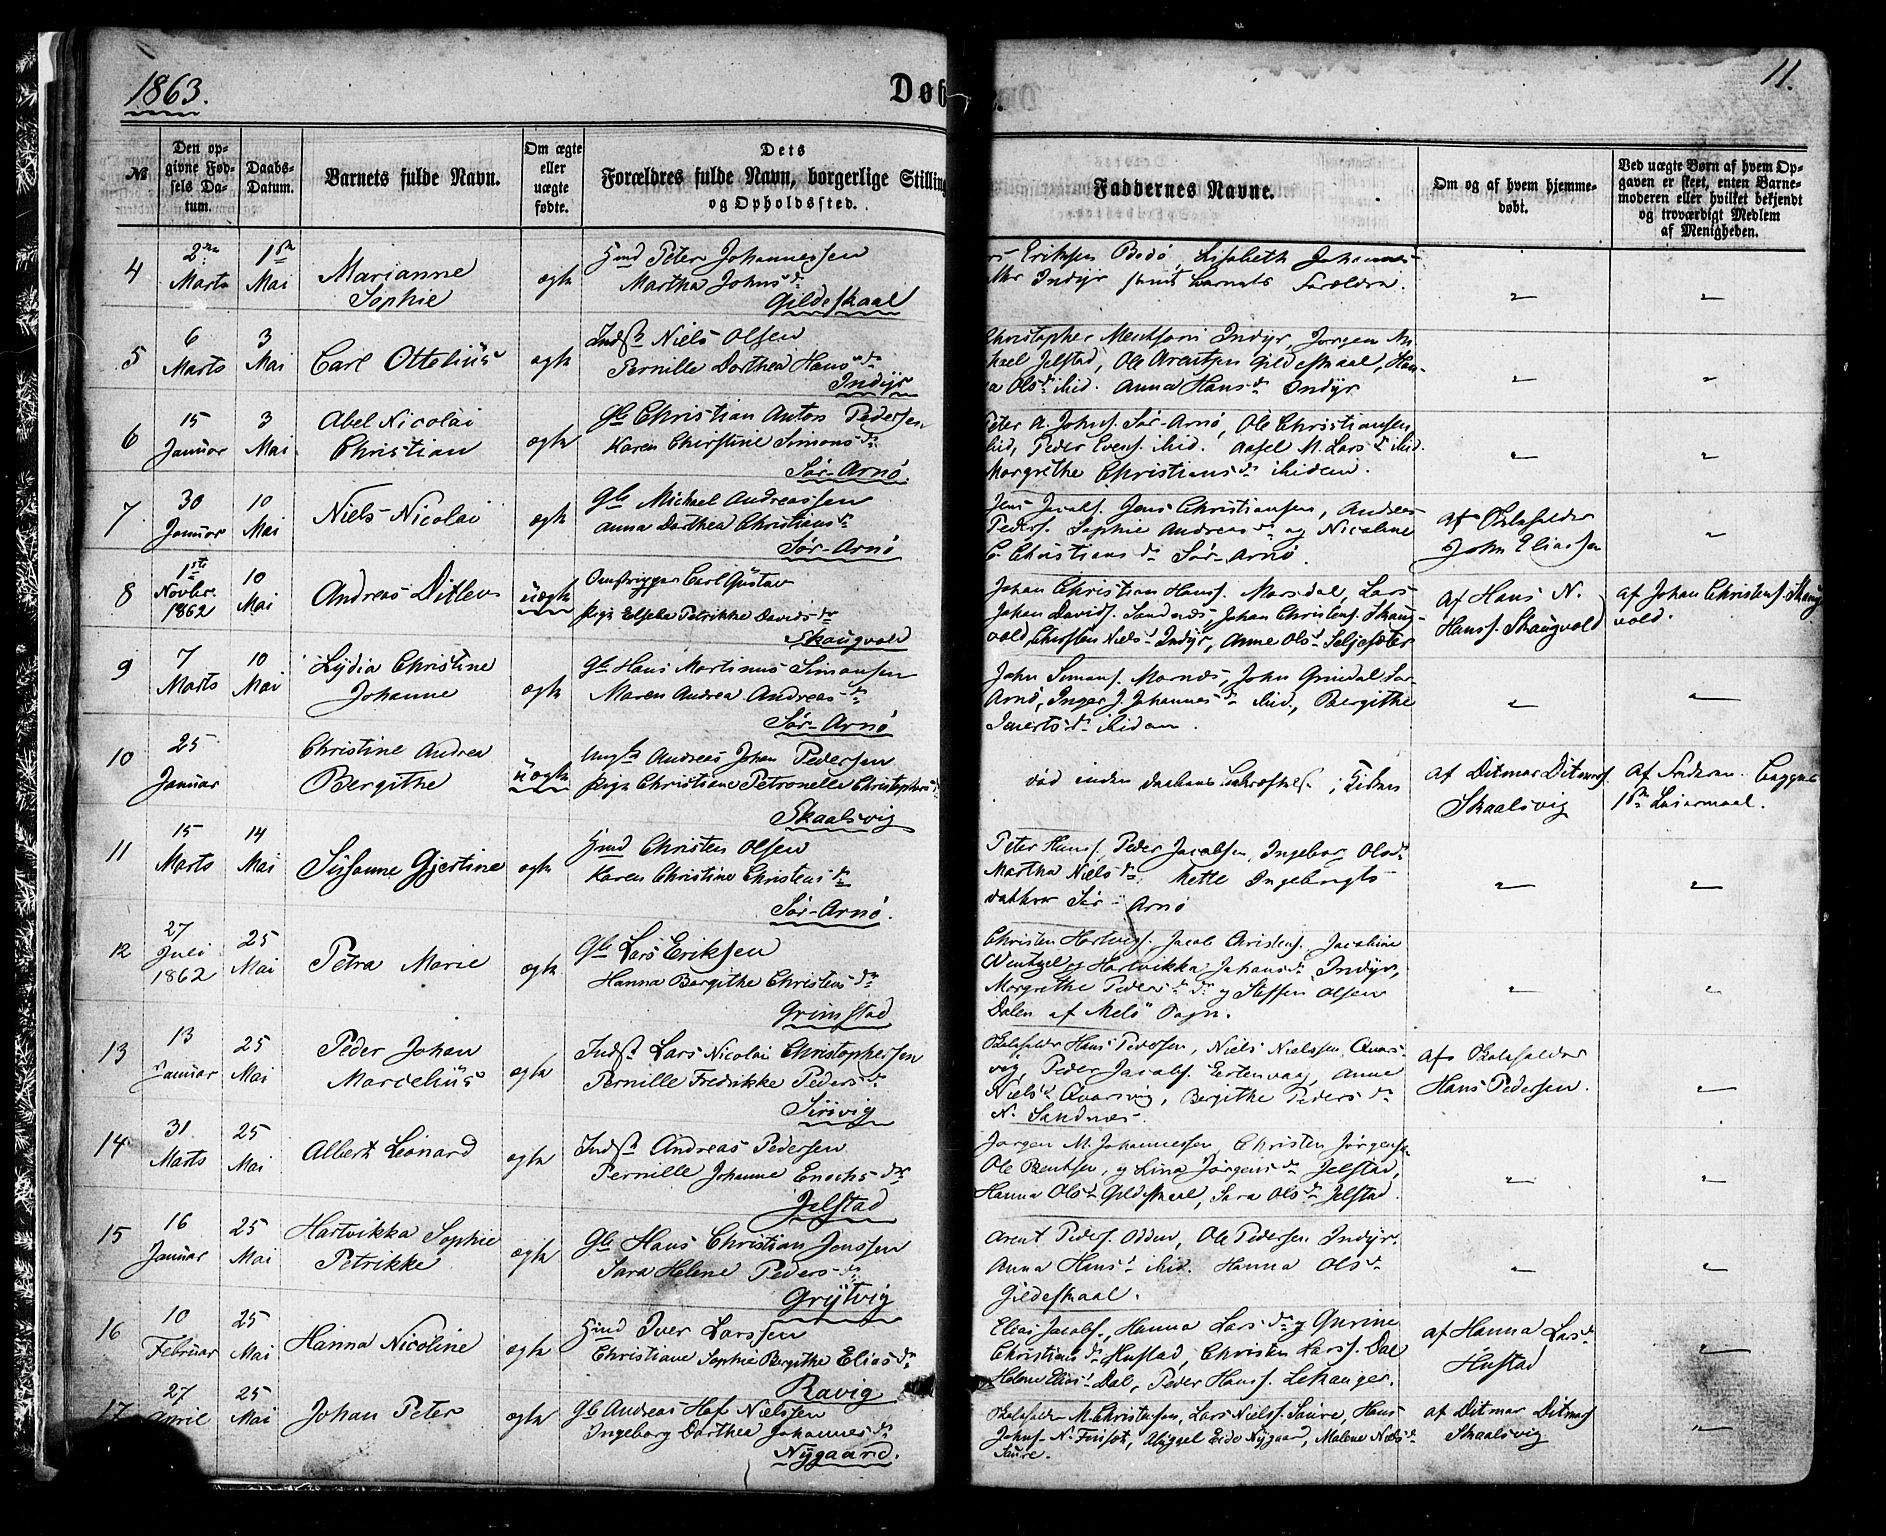 1863.
Døb
11.
№
Den opgivne Fødsels Datum.
Daabs-Datum.
Barnets fulde Navn.
Om ægte eller uægte fødte.
Dets Forældres fulde Navn, borgerlige Stilling og Opholdssted.
Faddernes Navne.
Om og af hvem hjemmedøbt.
Ved uægte Børn af hvem Opgaven er skeet, enten Barnemoderen eller hvilket bekjendt og troværdigt Medlem af Menigheden.
4
Marts
Mai
Marianne
Sophie
ægte
Peter Johannessen
Martha Johnsdr
Gildeskaal
Eriksen Bodø, Lisabeth Johannes-
Indyr samt Barnets Forældre.
5
6 Marts
3 Mai
Carl Ottelius
ægte
Indst Niels Olsen
Pernille Dorthea Hansdr
Indyr
Christopher Indyr, Jørgen Mi-
kael Jelstad, Ole Arentsen Gildeskaal, Han-
na Olsdr ibid. Anna Hansdr Indyr
6
15 Januar
3 Mai
Abel Nicolai
Christian
ægte
Gb Christian Anton Pedersen
Karen Cherstine Simonsdr
Sør-Arnø.
Peter A. Johns. Sør-Arnø, Ole Christiansen
ibid, Peder Evens. ibid. M. Larsdr ibid.
Margrethe Christiansdr ibidem.
7
30 Januar
10 Mai
Niels Nicolai
ægte
Gb Michael Andreassen
Anna Dorthea Christiansdr
Sør-Arnø
Jens Jacobs. Jens Christiansen, Andreas
Peders. Sophie Andreasdr og Nicoline
C. Christiansdr Sør-Arnø.
af Skoleholder
John Eliassen
8
1ste Novbr. 1862
10 Mai
Andreas Ditlev
uægte
Carl Gustav
Pige Elsebe Petrikke Davidsdr
Skaugvold
Johan Christian Hanss. Marsdal, Lars
Johan Davids. Sandnæs, Johan Christens. Skaug-
vold, Chersten Nielsd Indyr, Anne Olsd Seljesæter
af Hans N.
Hanss. Skaugvold
af Johan Christens. Skaug
vold.
9
7 Marts
10 Mai
Lydia Christine
Johanne
ægte
Gb Hans Martinus Simonsen
Maren Andrea Andreasdr
Sør-Arnø
John Simons. Marnæs, John Grindal Sør-
Arnø, Inger J. Johannesdr ibid., Bergithe
ibidem.
10
25 Januar
Christine Andrea
Bergithe
uægte
Ungk Andreas Johan Pedersen
Pige Christiane Petronelle Christophersdr
Skaalsvig
død inden Daabens Bekræftelse i Kirken
af Ditmar Ditmars.
Skaalsvig
1ste Leiermaal.
11
15 Marts
14 Mai
Susanne Gjertine
ægte
Christen Olsen
Karen Christine Christensdr
Sør-Arnø.
Peter Hanss, Peder Jacobsen, Ingebor Olsdr
Martha Nielsdr. Mette Ingebrigts-
datter Sør-Arnø
12
27 Juli 1862
25 Mai
Petra Marie
ægte
Gb Lars Eriksen
Hanna Bergithe Christensdr
Grimstad
Christen Hartvigs. Jacob Christens. Jacobine
Wentzel og Hartvikka Johansdr Indyr,
Margrethe Pedersdr og Steffen Olsen
Dalen af Melø Sogn.
13
13 Januar
25 Mai
Peder Johan
Marcelius
ægte
Indst Lars Nicolai Christophersen
Pernille Fredrikke Pedersdr
Sørvig
Skoleholder Hans Pedersen, Niels Nielssen Qvars-
vig, Peder Jacobs. Ertenvaag, Anne
Nielsd Qvarsvig, Bergithe Pedersdr
N. Sandnæs.
af Skoleholder
Hans Pedersen.
14
31 Marts
25 Mai
Albert Leonard
ægte
Indst Andreas Pedersen
Pernille Johanne Enochsdr
Jelstad
Jørgen M. Johannessen, Christen Jørgensen
Ole Bentsen, og Lina Jørgensdr Jelstad,
Hanna Olsd Gildeskaal, Sara Olsdr Jelstad.
15
16 Januar
25 Mai
Hartvikka Sophie
Petrikke
ægte
Gb Hans Christian Jenssen
Sara Helene Pedersdr
Grytvig
Arent Peders. Odden, Ole Pedersen Indyr.
Anna Hansd ibid. Hanna Olsdr
Gildeskaal.
16
10 Februar
25 Mai
Hanna Nicoline
ægte
Iver Larssen
Christiane Sophie Bergithe Eliasdr
Ravig
Elias Jacobs., Hanna Larsdr og Gurine
Christiansdr Hustad, Christen Larss. Dal
Helene Eliasd Dal, Peder Hanss. Lekanger.
af Hanna Larsd
Hustad
17
27 April
25 Mai
Johan Peter
ægte
Gb Andreas Hof Nielssen
Ingeborg Dorthea Johannesdr
Nygaard.
Skoleholder M. Christensen, Lars Nielss. Saure, Hans
Johns. N. Finset, Eide Nygaar, Malene Nielsdr
Saure.
af Ditmar Ditmars
Skaalsvig